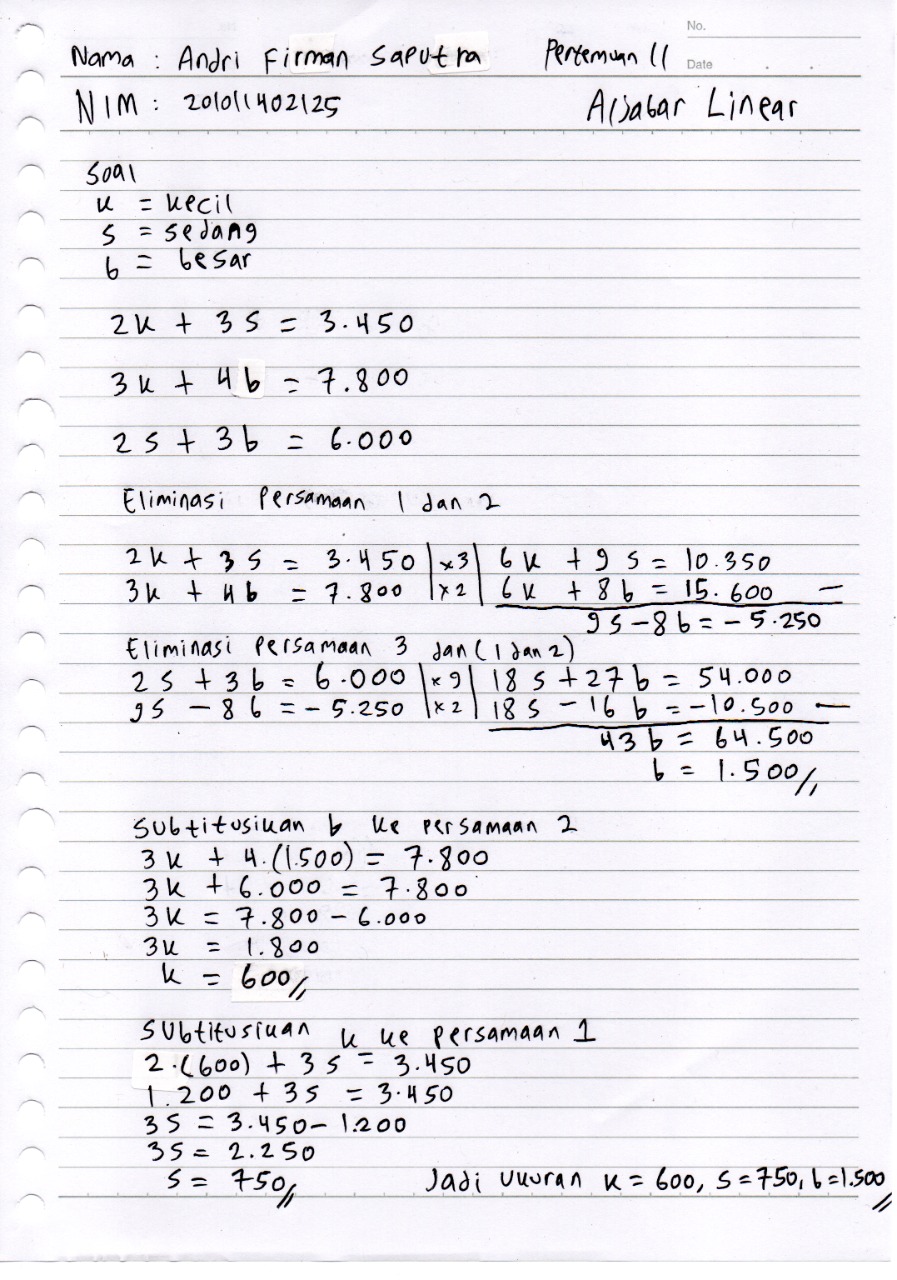 No.
Nama : Andri Firman Saputra Pertemuan 11
Date
NIM : 201011402125 Aljabar Linear
Soal
k = kecil
s = sedang
b = besar
2k + 3s = 3.450
3k + 4b = 7.800
2s + 3b = 6.000
Eliminasi Persamaan 1 dan 2
2k + 3s = 3.450 | x3 | 6k + 9s = 10.350
3k + 4b = 7.800 | x2 | 6k + 8b = 15.600 —
9s - 8b = - 5.250
Eliminasi Persamaan 3 dan (1 dan 2)
2s + 3b = 6.000 | x9 | 18s + 27b = 54.000
9s - 8b = - 5.250 | x2 | 18s - 16b = - 10.500 —
43b = 64.500
b = 1.500//
Subtitusikan b ke persamaan 2
3k + 4.(1.500) = 7.800
3k + 6.000 = 7.800
3k = 7.800 - 6.000
3k = 1.800
k = 600//
Subtitusikan k ke persamaan 1
2.(600) + 3s = 3.450
1.200 + 3s = 3.450
3s = 3.450 - 1.200
3s = 2.250
s = 750// Jadi ukuran k = 600, s = 750, b = 1.500//